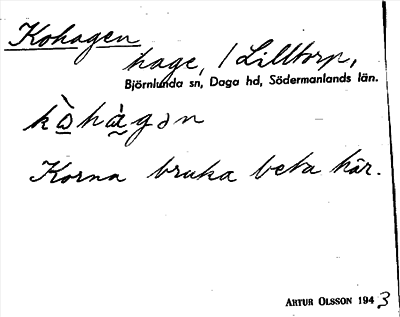 Kohagen
hage, / Lilltorp,
Björnlunda sn, Daga hd, Södermanlands län.
kò̱hà̰gən
Korna bruka beta här.
ARTUR OLSSON 1943